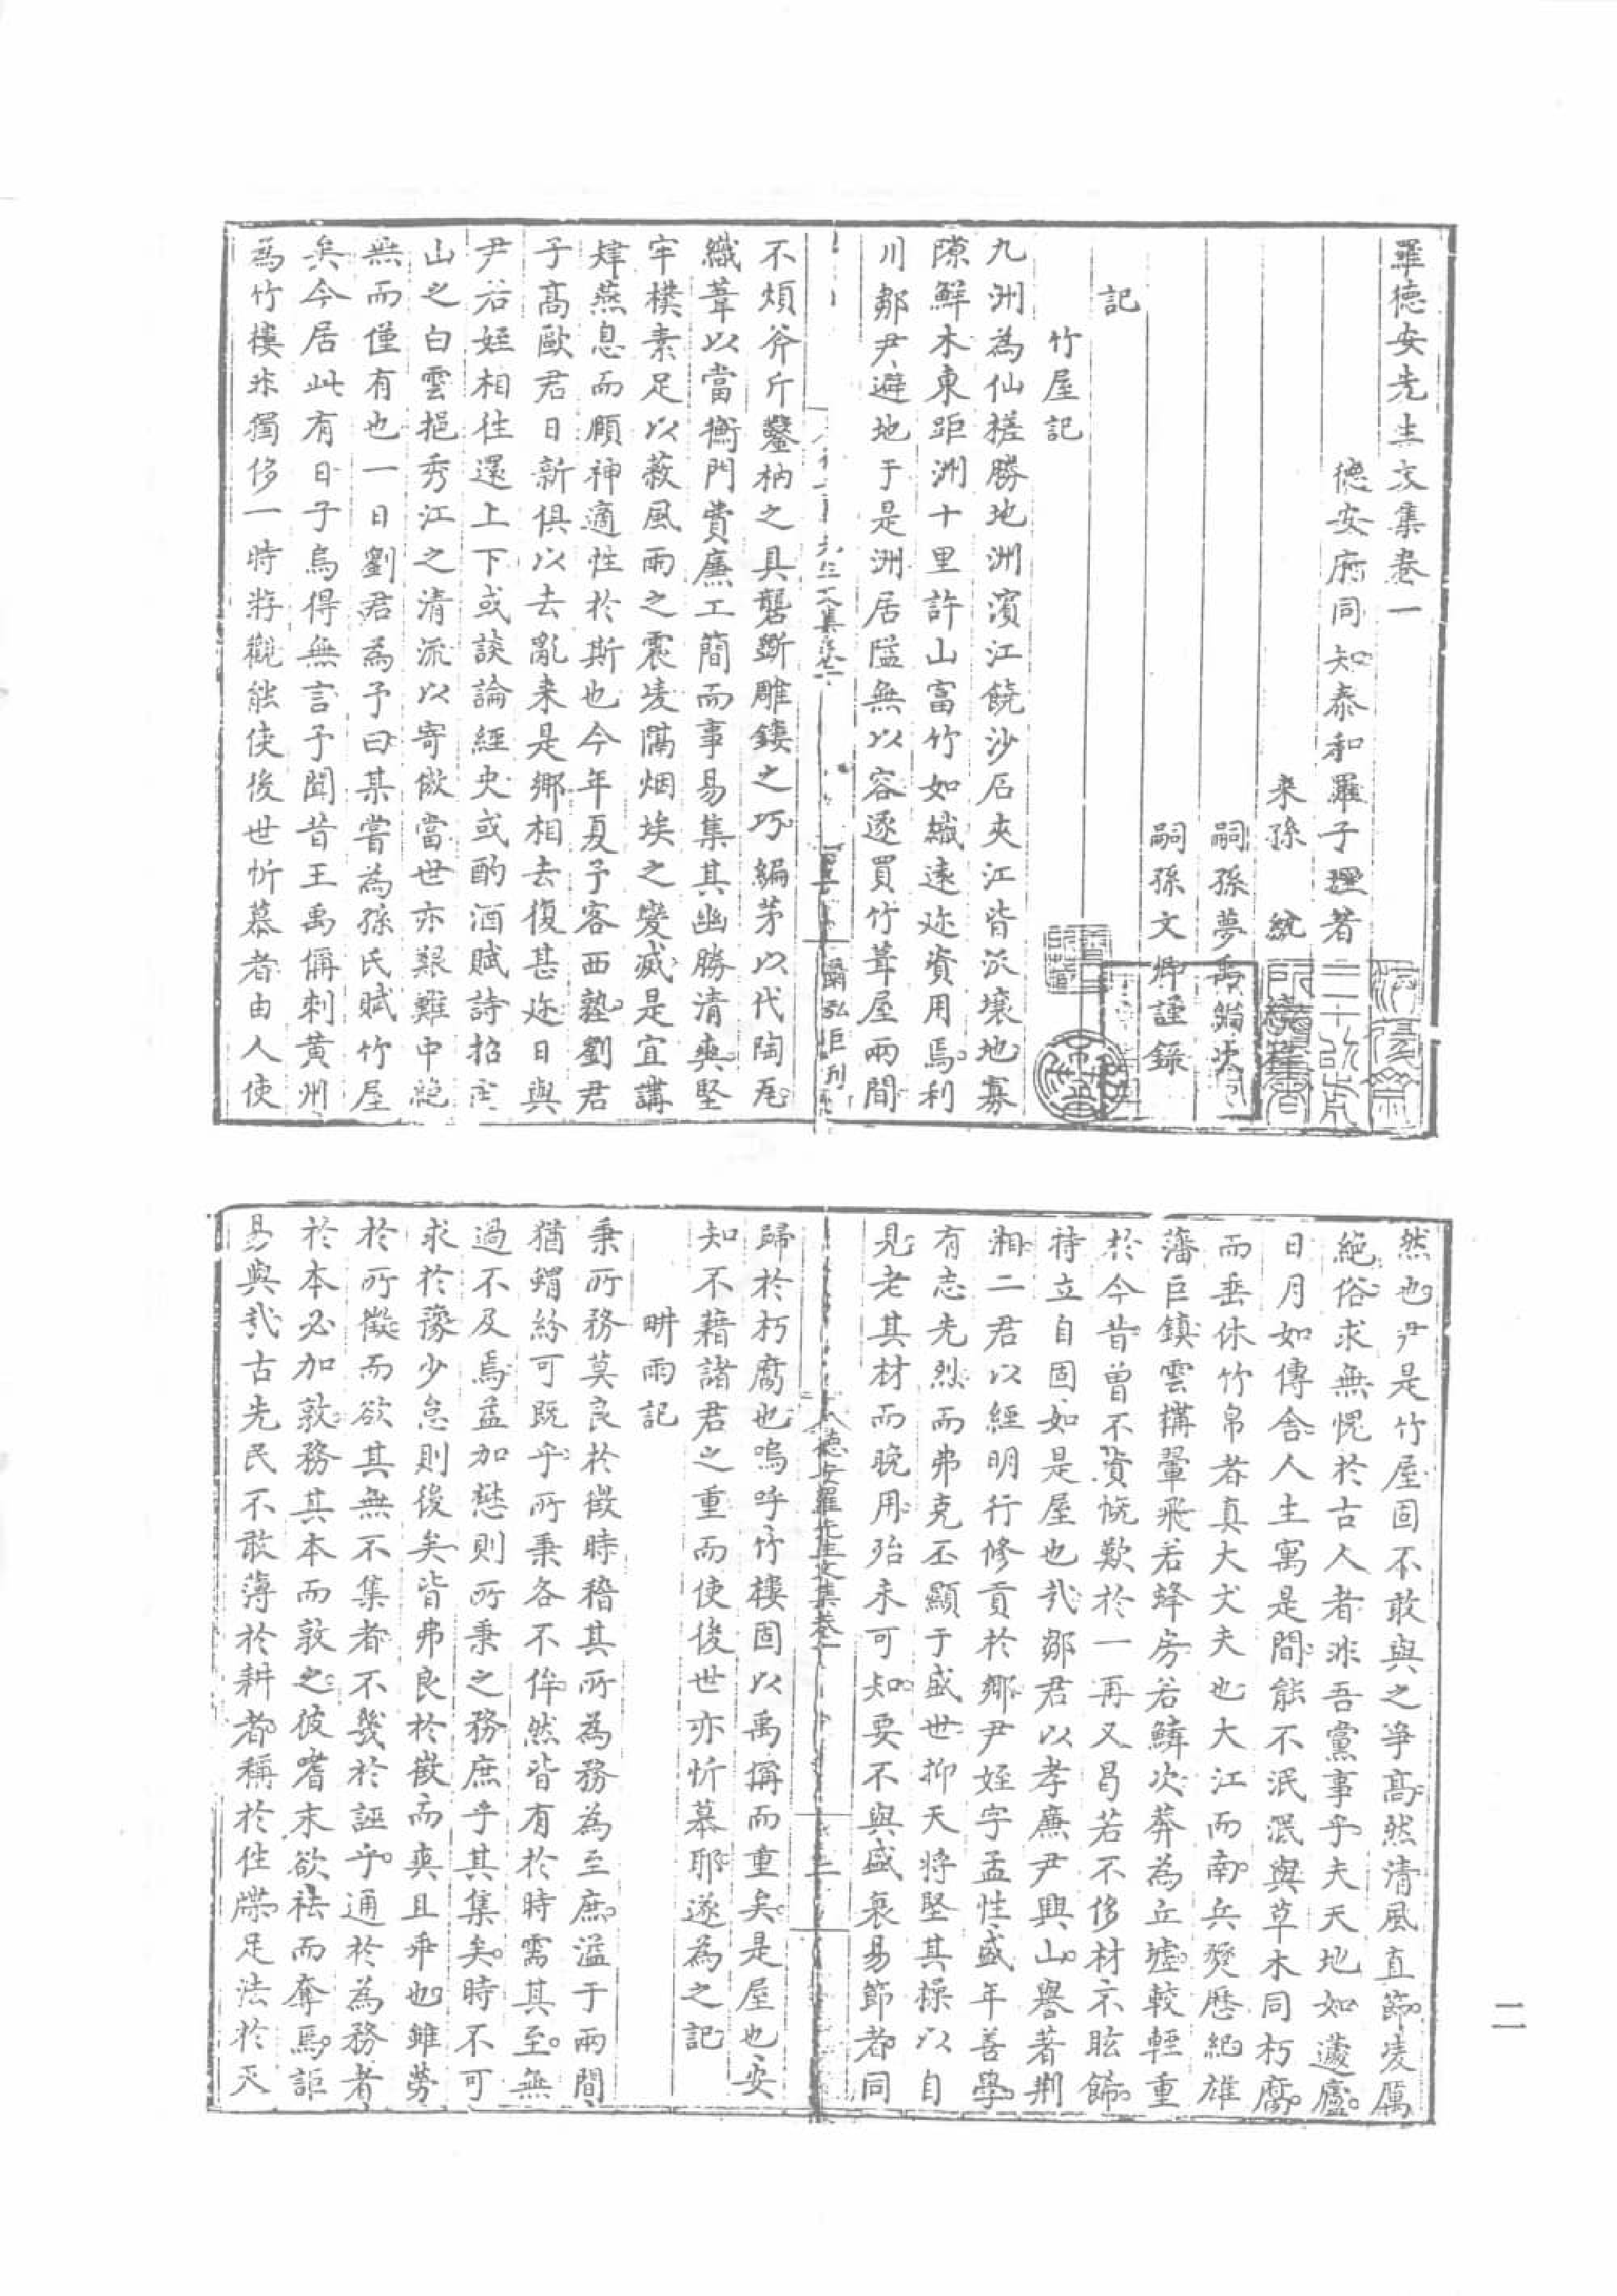 羅德安先生文集卷一
德安府同知泰和羅子理著
來孫 統
嗣孫夢禹編次
嗣孫文卿謹錄
記
竹屋記
九洲為仙槎勝地洲濱江饒沙石夾江皆沃壤地寡
隙鮮木東距洲十里許山富竹如織遠邇資用焉利
川鄒尹避地于是洲居隘無以容遂買竹葺屋兩間
不煩斧斤鑿枘之具礱斲雕鏤之巧編茅以代陶瓦
織葦以當衡門費廉工簡而事易集其幽勝清爽堅
牢樸素足以蔽風雨之震凌隔烟埃之變滅是宜講
肄燕息而頤神適性於斯也今年夏予客西塾劉君
子高歐君日新俱以去亂来是鄉相去復甚邇日與
尹若姪相徃還上下或談論經史或酌酒賦詩招
山之白雲挹秀江之清流以寄傲當世亦艱難中絕
無而僅有也一日劉君為予曰某嘗為孫氏賦竹屋
矣今居此有日子烏得無言予聞昔王禹偁刺黃州
為竹樓非獨侈一時游觀能使後世忻慕者由人使
然也尹是竹屋固不敢與之爭高然清風直節凌厲
絕俗求無愧於古人者非吾黨事乎夫天地如蘧廬
日月如傳舍人生寓是間能不泯泯與草木同朽腐
而垂休竹帛者真大丈夫也大江而南兵燹歷紀雄
藩巨鎮雲搆翬飛若蜂房若鱗次莽為丘墟較輕重
於今昔曾不資慨歎於一再又曷若不侈材不眩飾
待立自固如是屋也哉鄒君以孝廉尹興山譽著荆
湘二君以經明行修貢於鄉尹姪字孟性盛年善學
有志先烈而弗克丕顯于盛世抑天將堅其操以自
見老其材而晚用殆未可知要不與盛衰易節者同
歸於朽腐也嗚呼竹樓固以禹偁而重矣是屋也安
知不藉諸君之重而使後世亦忻慕耶遂為之記
畊雨記
秉所務莫良於徴時稽其所為務為至庶溢于兩間
猶蝟紛可既乎所秉各不侔然皆有於時需其至無
過不及焉益加愗則所秉之務庶乎其集矣時不可
求於豫少怠則後矣皆弗良於徴而爽且乖也雖勞
於所徴而欲其無不集者不幾於誣乎通於為務者
於本必加敦務其本而敦之彼嗜末欲袪而奪焉詎
易與哉古先民不敢薄於耕者稱於徃牒足法於天
德安羅先生文集卷一
二